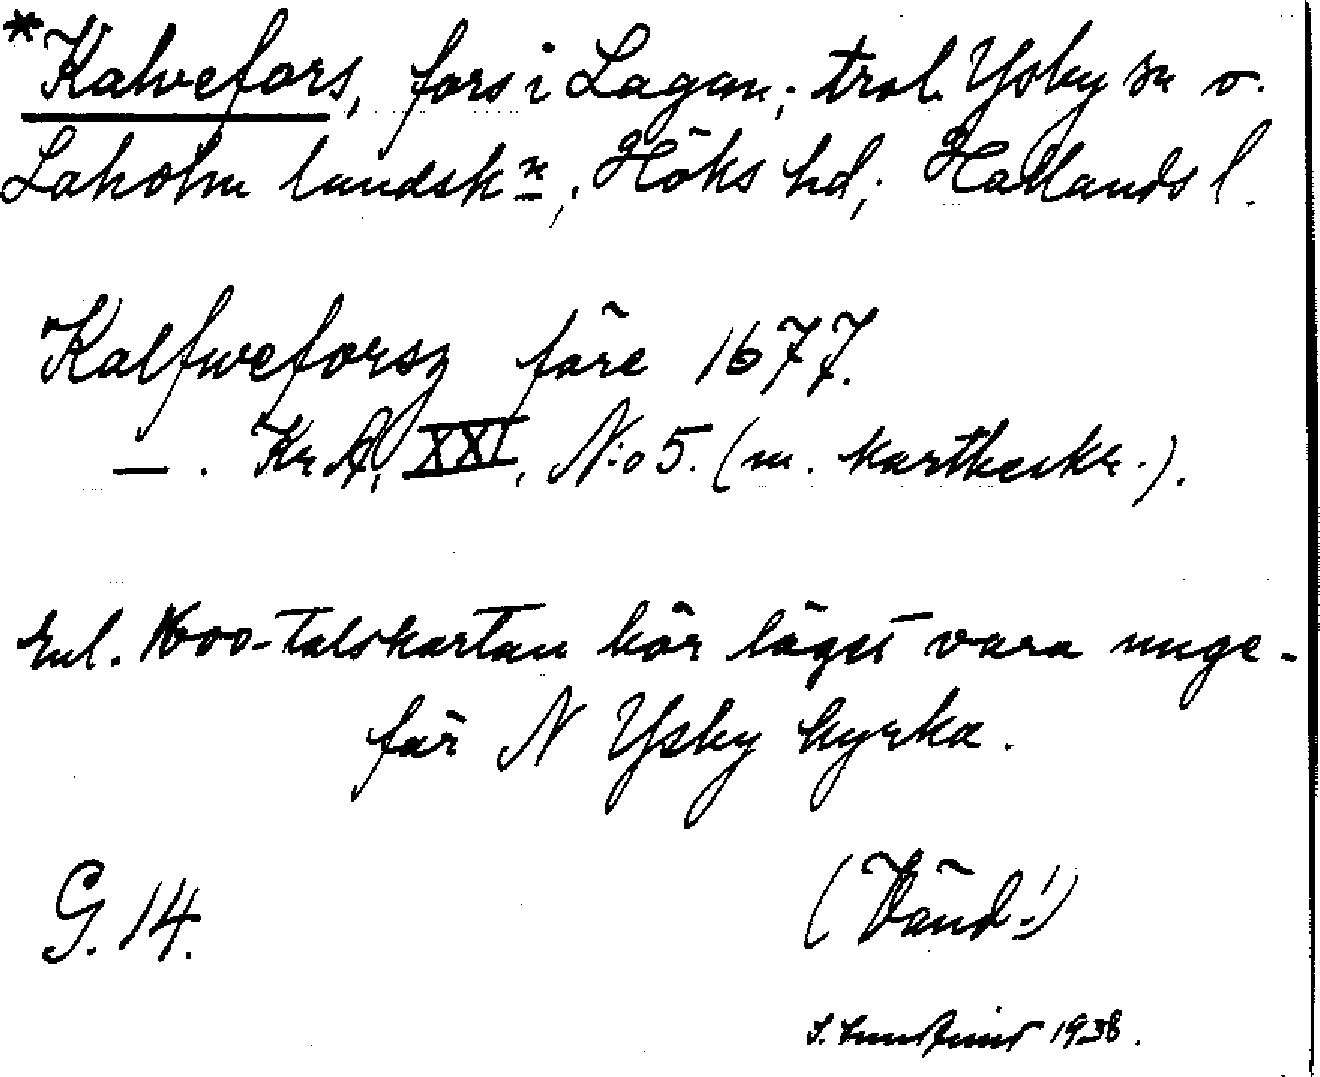 *Kalvefors, fors i Lagan; trol. Ysby sn o.
Laholm landskn; Höks hd; Hallands l.
Kalfweforsz före 1677.
— . Kr A, XXI, N:o 5. (m. kartbeskr.).
Enl. 1600-talskartan bör läget vara unge-
fär N Ysby kyrka.
G. 14.
(Vänd!)
1938.